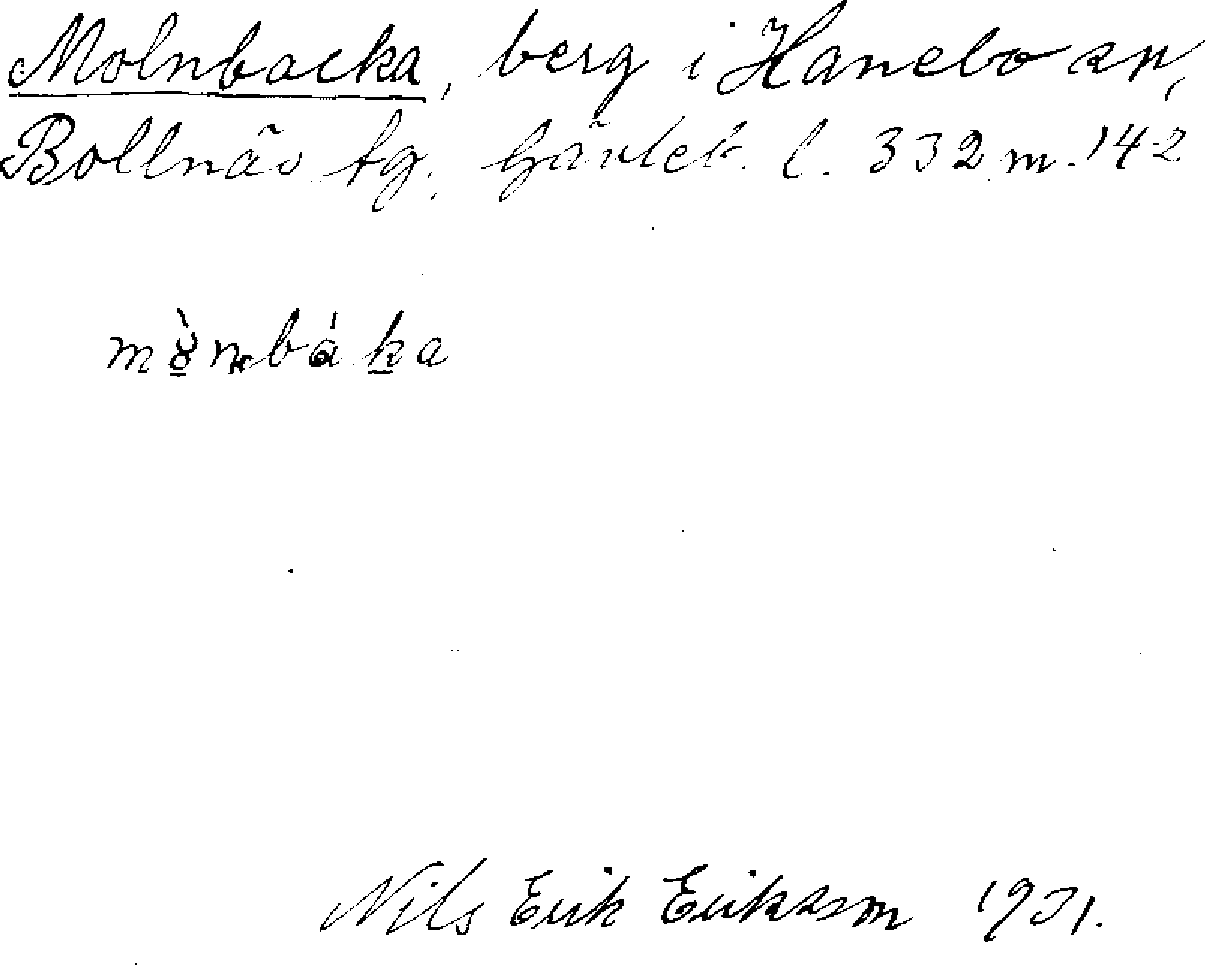 Molnbacka, berg i Hanebo sn,
Bollnäs tg. Gävleb. l. 332 m. 142
Nils Erik Eriksson 1931.